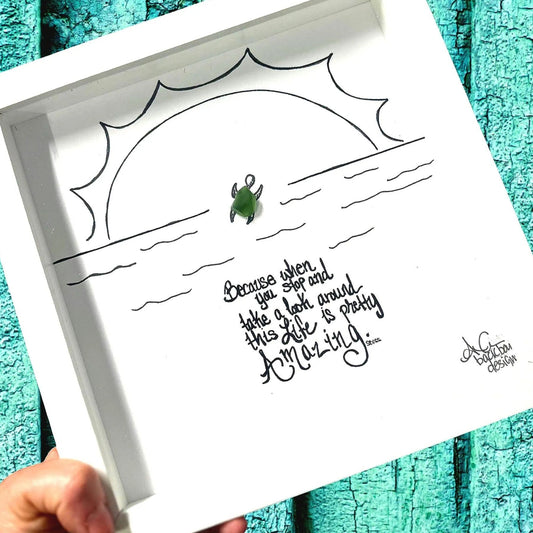 Because when
you stop and
take a look around
this Life is pretty
Amazing.
AG
backbay
design